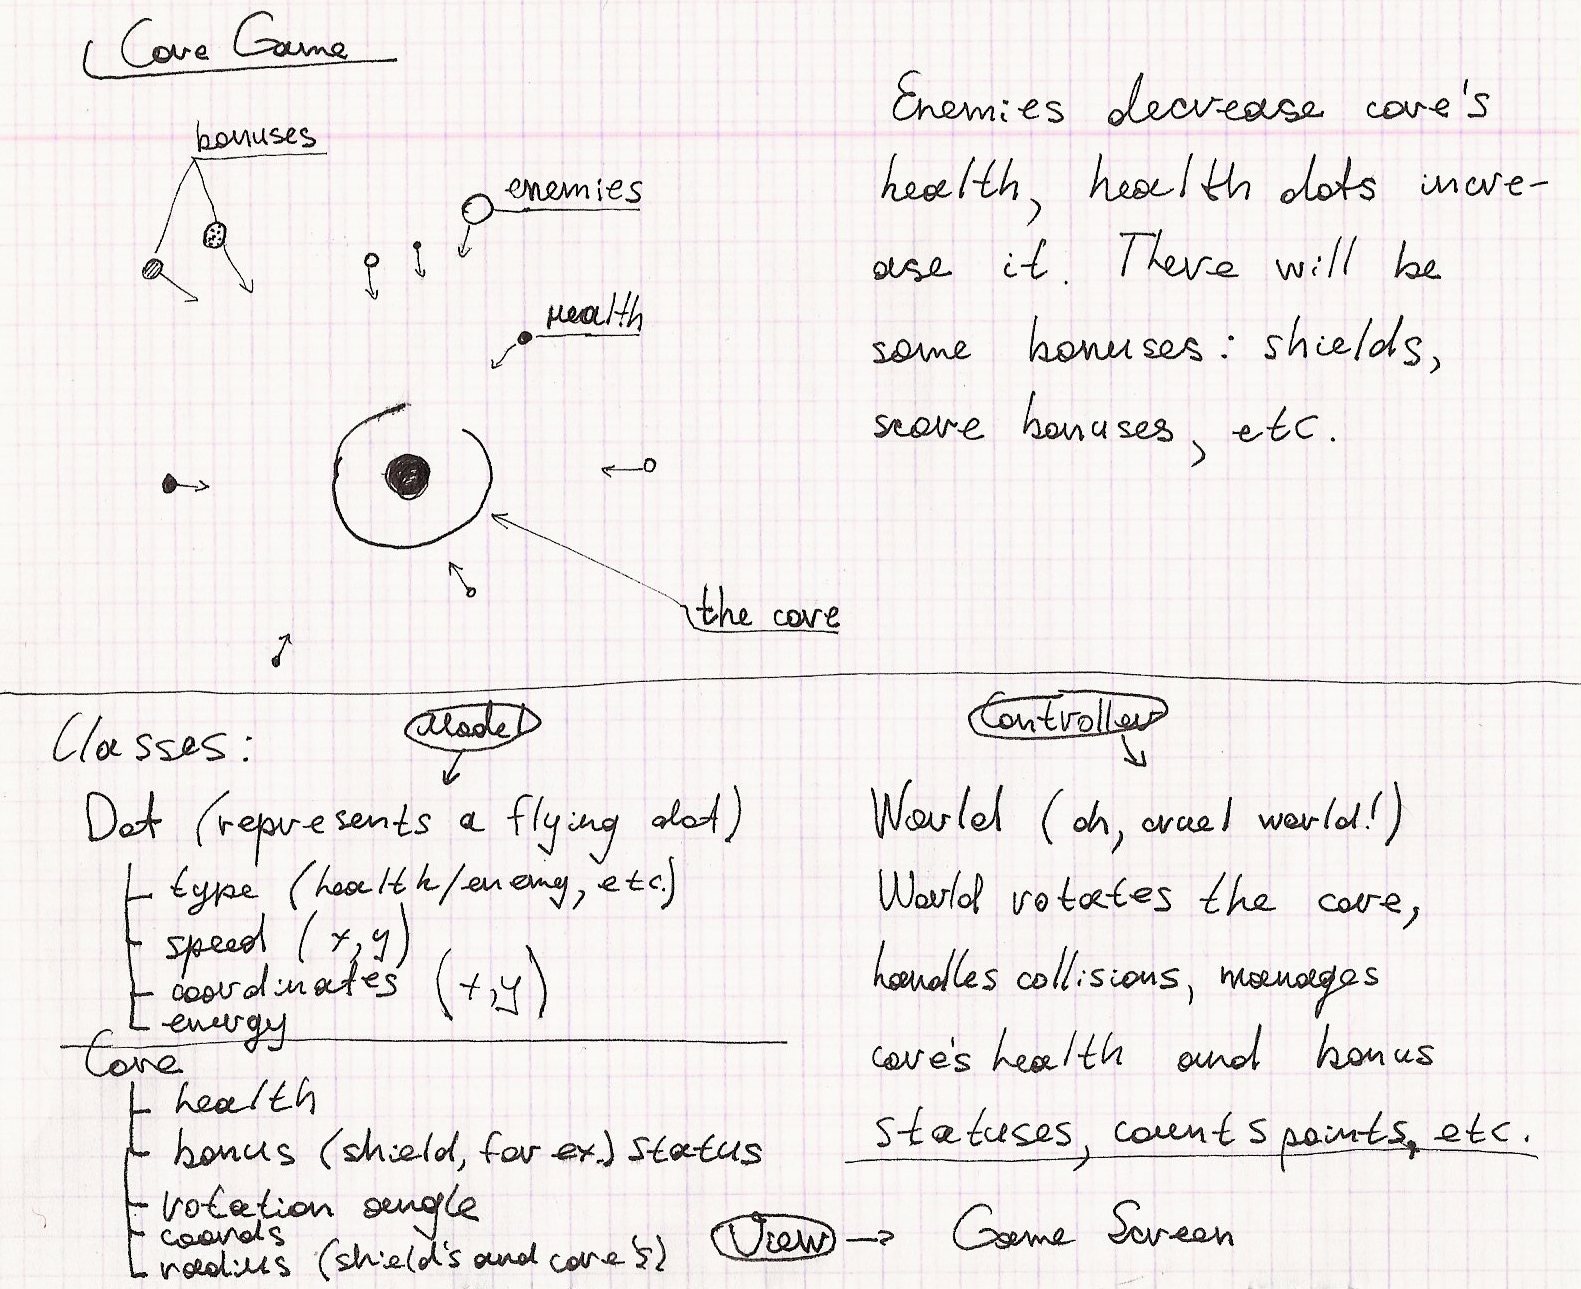 Core Game
bonuses
enemies
health
the core
Enemies decrease core's
health, health dots incre-
ase it. There will be
some bonuses: shields,
score bonuses, etc.
Classes:
Model
Dot (represents a flying dot)
type (health/enemy, etc.)
speed (x,y)
coordinates (x,y)
energy
Core
health
bonus (shield, for ex.) status
rotation angle
coords
radius (shield's and core's)
Controller
World (oh, cruel world!)
World rotates the core,
handles collisions, manages
core's health and bonus
statuses, counts points, etc.
View → Game Screen